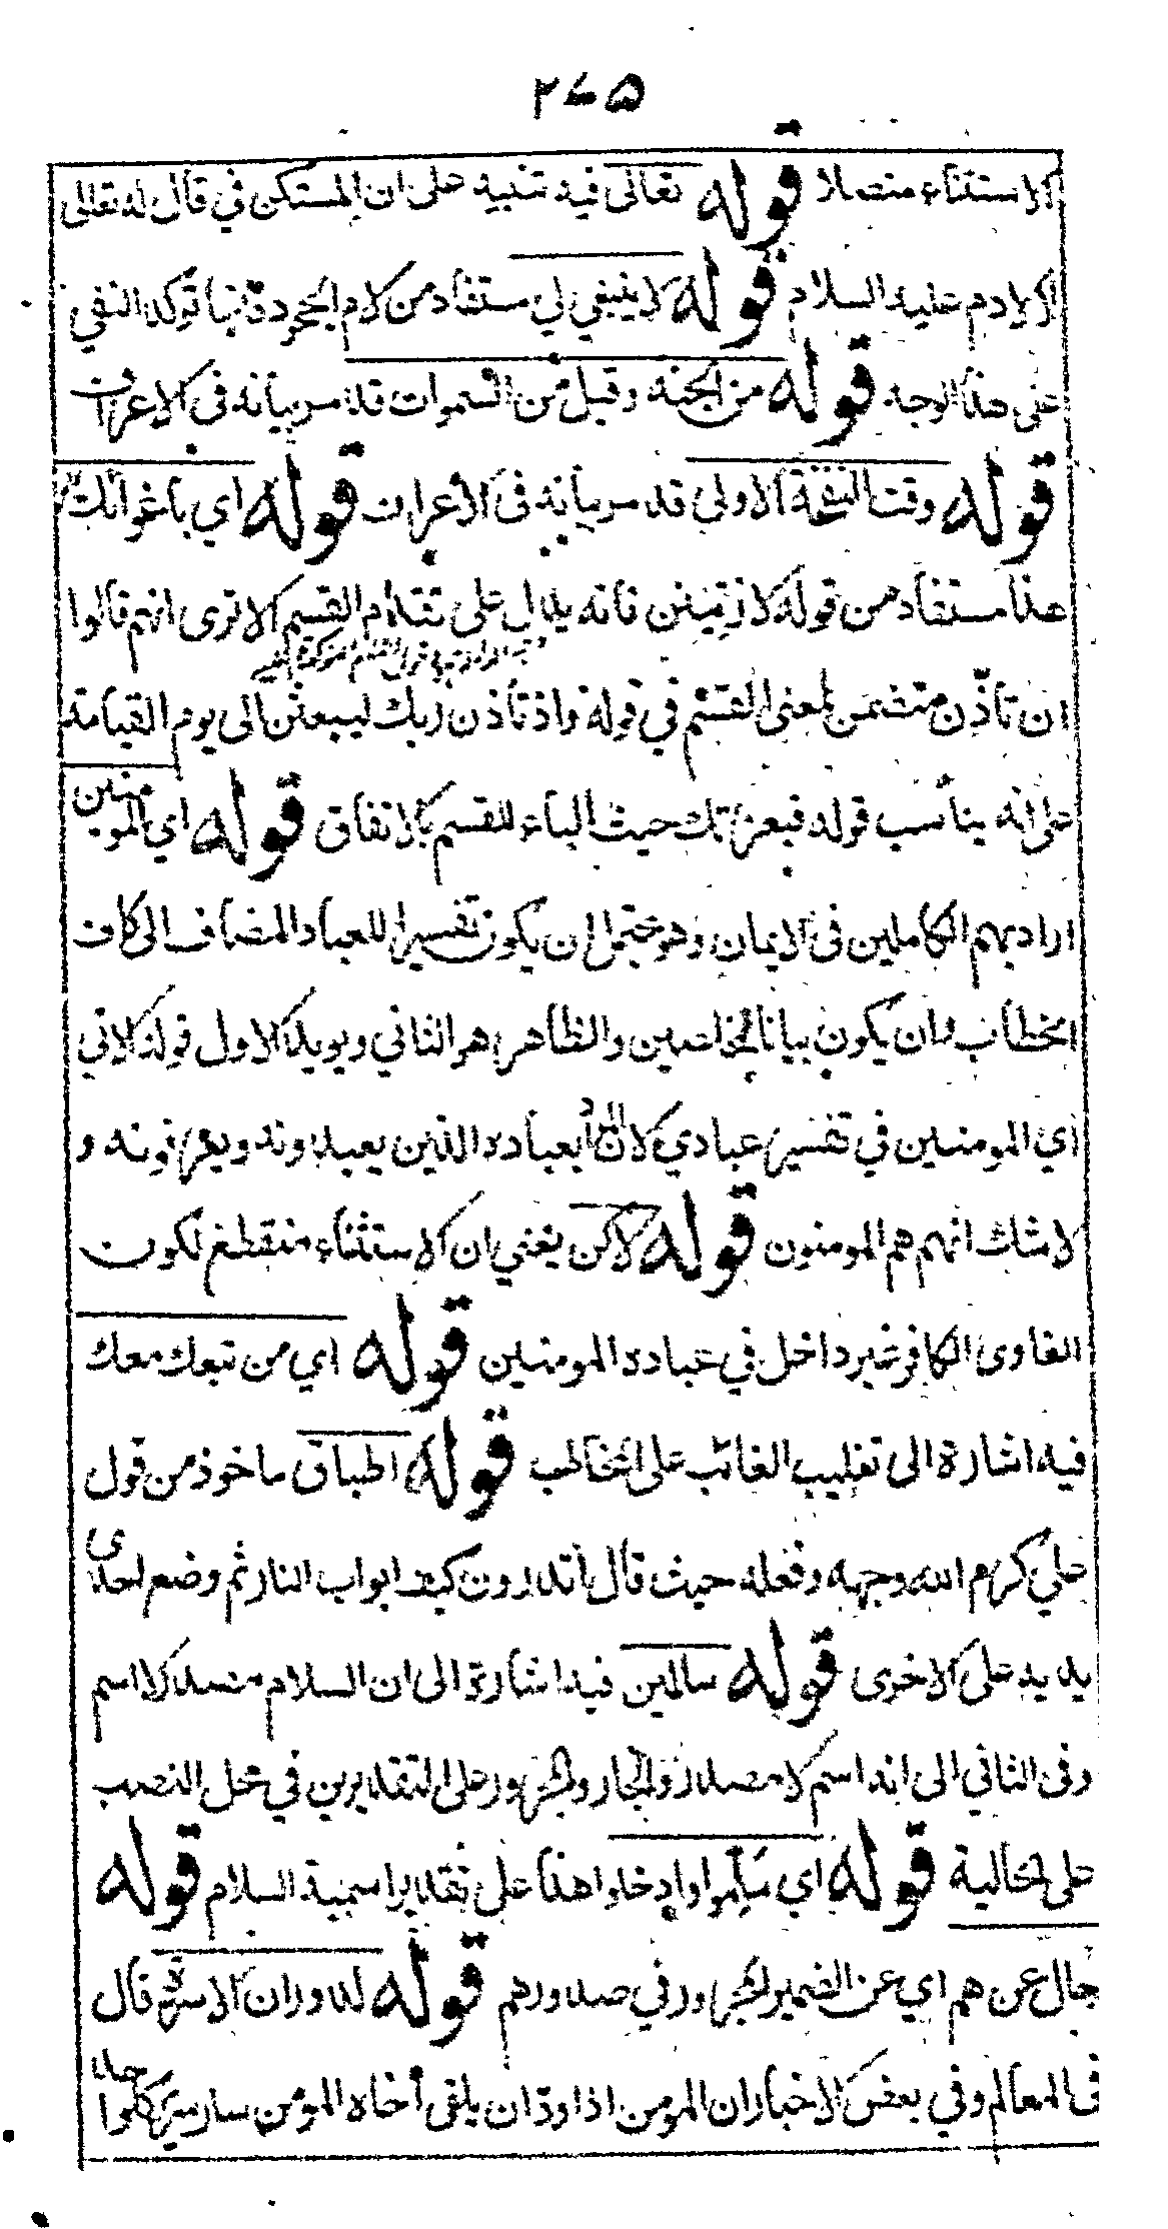 ٢٧٥
الاستثناء متصلا قوله تعالى فيه تنبيه على ان المستكن في قال له تعالى
لا لادم عليه السلام قوله لا ينبغي لي مستفاد من لام الجحود فانها توكد النفي
على هذا الوجه قوله من الجنة وقيل من السموات قد مر بيانه في الاعراف
قوله وقت النفخة الاولى قد مر بيانه في الاعراف قوله اي باغوائك لي
هذا مستفاد من قوله لازينن فانه يدل على تقدم القسم الا ترى انهم قالوا
ان تاذن متضمن لمعنى القسم في قوله واذ تأذن ربك ليبعثن الى يوم القيامة
على انه يناسب قوله فبعزتك حيث الباء للقسم بالاتفاق قوله اي المومنين
اراد بهم الكاملين في الايمان وهو يحتمل ان يكون تفسيرا للعباد المضاف الى كاف
الخطاب وان يكون بيانا للمخلصين والظاهر هو الثاني ويويد الاول قوله الاتي
اي المومنين في تفسير عبادي لان المراد بعباده الذين يعبدونه ويعرفونه و
لا شك انهم هم المومنون قوله لاكن يعني ان الاستثناء منقطع لكون
الغاوى الكافر غير داخل في عباده المومنين قوله اي من تبعك معك
فيه اشارة الى تغليب الغائب على المخاطب قوله اطباق ماخوذ من قول
علي كرم الله وجهه وفعله حيث قال أتدرون كيف ابواب النار ثم وضع احدى
يديه على الاخرى قوله سالمين فيه اشارة الى ان السلام مصدر لا اسم
وفي الثاني الى انه اسم لا مصدر والجار والمجرور على التقديرين في محل النصب
على الحالية قوله اي سلموا وادخلوا هذا على تقدير اسمية السلام قوله
حال عن هم اي عن الضمير المجرور في صدورهم قوله لدوران الاسرة قال
في المعالم وفي بعض الاخبار ان المومن اذا ود ان يلقى أخاه المؤمن سار سرير كل واحد